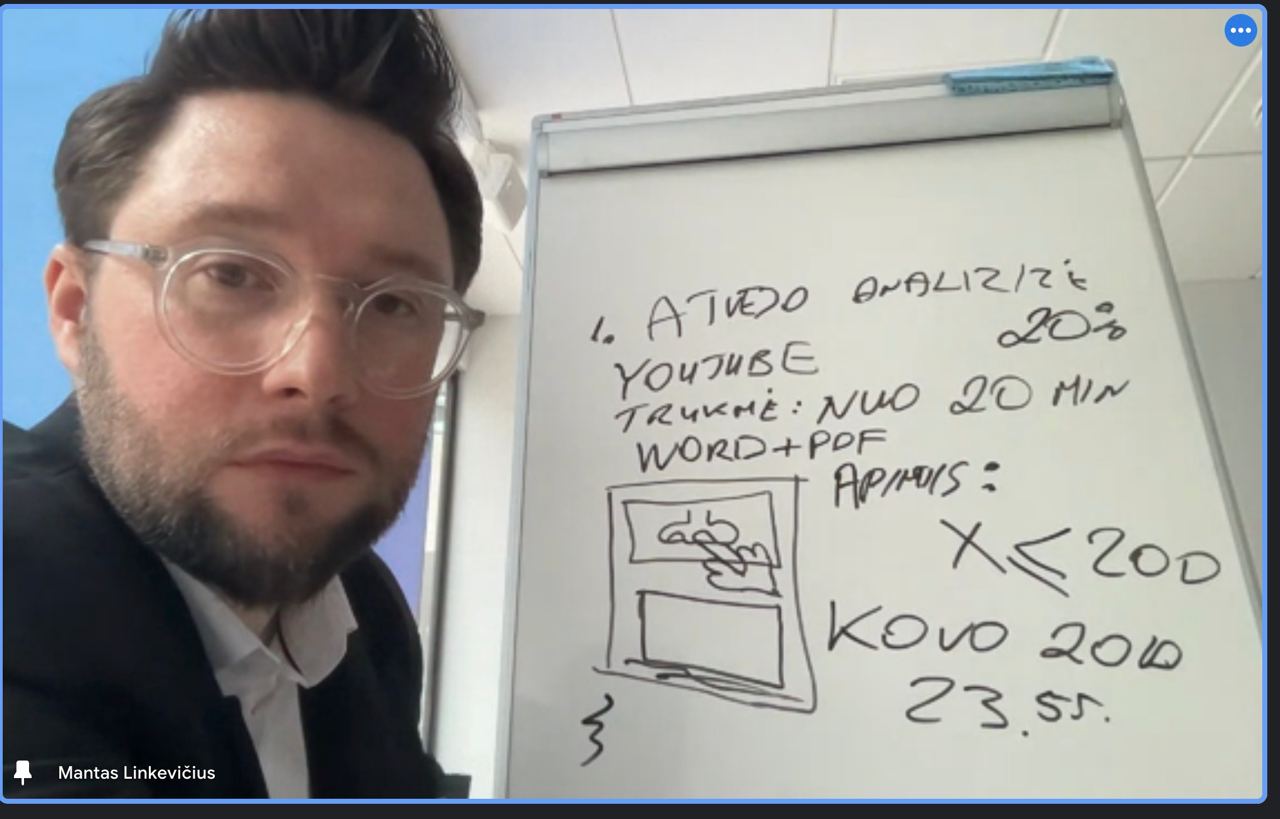 1. ATVEJO ANALIZIZĖ
20%
YOUTUBE
TRUKMĖ: NUO 20 MIN
WORD+PDF
APIMDIS:
X ≤ 200
KOVO 20D
23.55.
Mantas Linkevičius